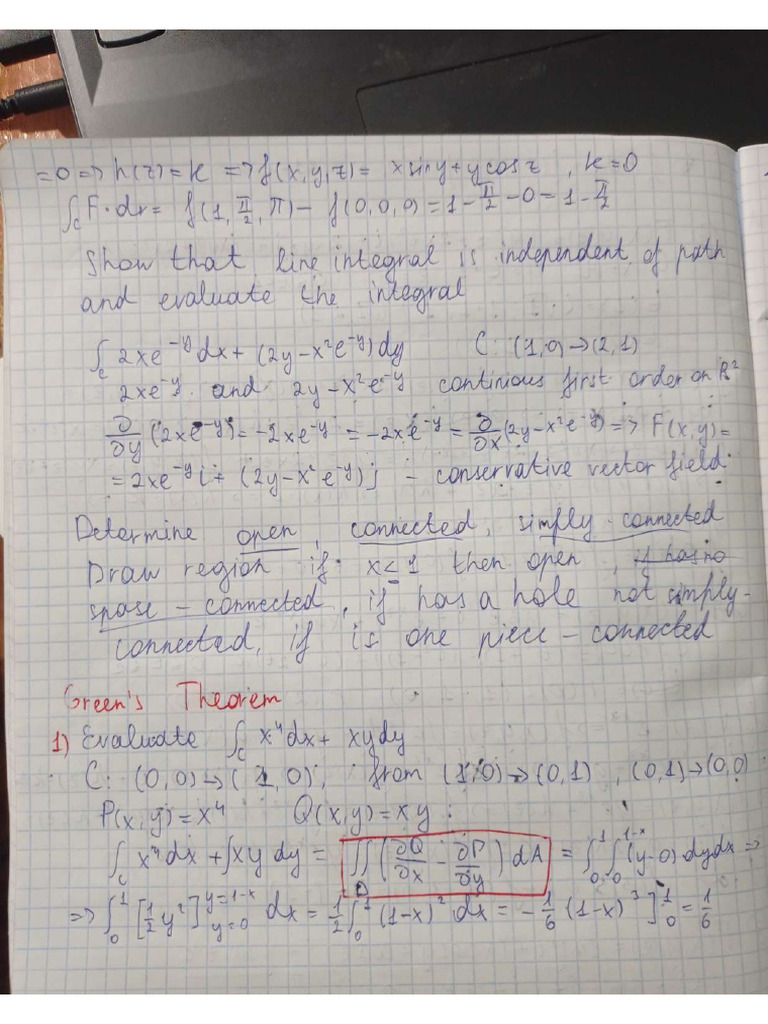 =0 => h(z)=k => f(x,y,z)= xsiny+ycosz , k=0
∫_C F·dr= f(1, π/2, π) - f(0,0,0) = 1 - π/2 - 0 = 1 - π/2
Show that line integral is independent of path
and evaluate the integral
∫_C 2xe^-y dx + (2y-x²e^-y)dy C: (1,0)→(2,1)
2xe^-y and 2y-x²e^-y continious first order on R²
∂/∂y (2xe^-y)= -2xe^-y = -2xe^-y = ∂/∂x (2y-x²e^-y) => F(x,y)=
= 2xe^-y i + (2y-x²e^-y)j - conservative vector field.
Determine open, connected, simply-connected
Draw region if x<1 then open, if has no
spase - connected, if has a hole not simply-
connected, if is one piece - connected
Green's Theorem
1) Evaluate ∫_C x⁴dx + xydy
C: (0,0)→(1,0), from (1,0)→(0,1), (0,1)→(0,0)
P(x,y)=x⁴ Q(x,y)=xy
∫_C x⁴dx + ∫xy dy = ∬_D (∂Q/∂x - ∂P/∂y) dA = ∫_0^1 ∫_0^1-x (y-0) dydx =>
=> ∫_0^1 [1/2 y²]_y=0^y=1-x dx = 1/2 ∫_0^1 (1-x)² dx = -1/6 (1-x)³]_0^1 = 1/6